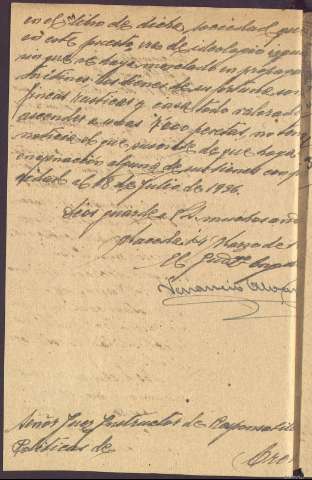 en el libro de dicha sociedad que
en este puesto, era de ideologia izqui
sin que se haya mezclado en propagan
da
los bienes de su fortuna son
fincas rusticas y casa todo valorado
asciende a unas 7000 pesetas, no tiene
noticia el que suscribe de que haya
enajenación alguna de sus bienes con p
al 18 de Julio de 1936.
Dios guarde a Vd. muchos año
14 Marzo de 1
El
Venancio Alvar
Señor Juez Instructor de Responsabili
Politicas de Oren